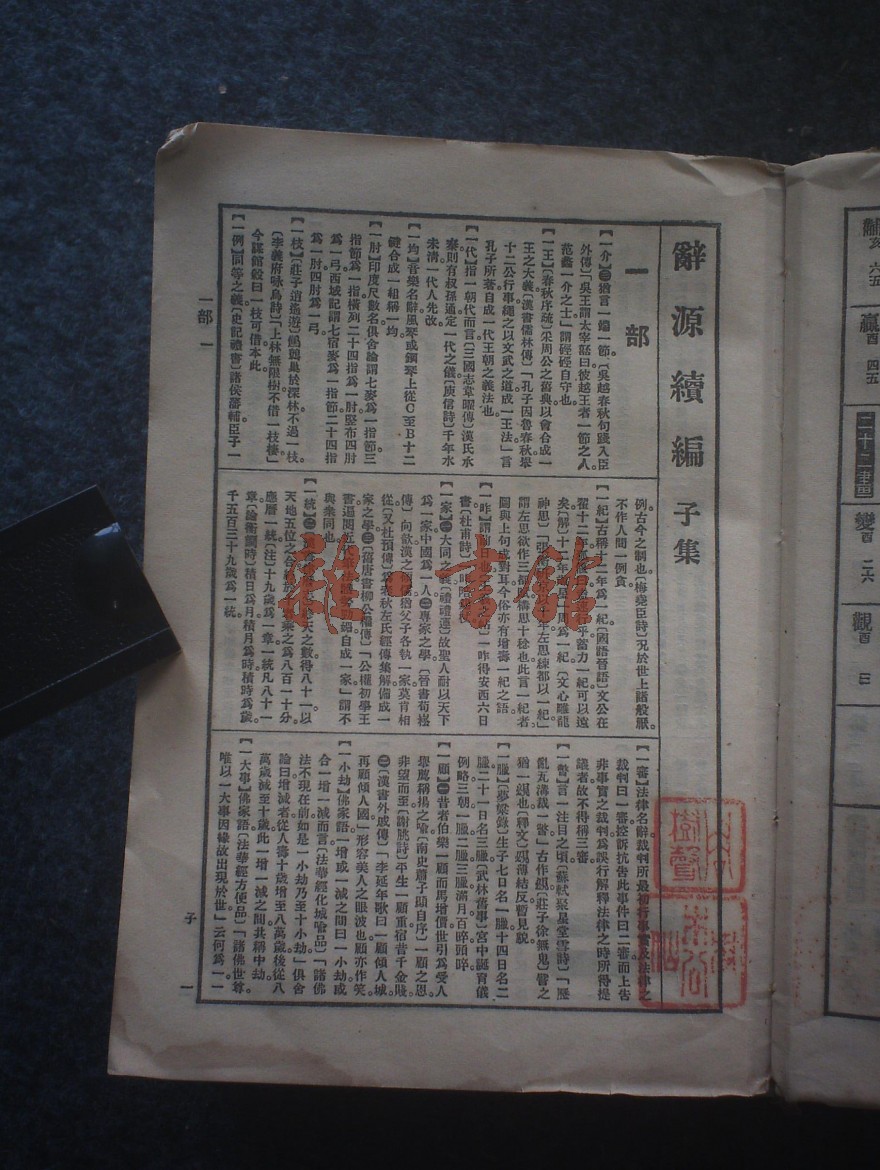 辭源續編 子集
一部
【一介】㊀猶言一錢一節。〔吳越春秋句踐入臣
外傳〕「吳王謂太宰嚭曰彼越王者一節之人
范蠡一介之士」謂硜硜自守也。
【一王】〔春秋序疏〕采周公之舊典以會合成一
王之大義〔漢書儒林傳〕「孔子因魯春秋舉
十二公行事繩之以文武之道成一王法」言
孔子所著自成一代王朝之義法也。
【一代】指一朝代而言〔三國志韋曜傳〕漢氏承
秦則有叔孫通定一代之儀〔庾信詩〕千年水
未清一代人先改
【一均】音樂名辭風琴或鋼琴上從C至B十二
鍵合成一組稱一均。
【一肘】印度尺數名俱舍論謂七麥爲一指節三
指節爲一指橫列二十四指爲一肘豎布四肘
爲一弓西域記謂七宿麥爲一指節二十四指
爲一肘四肘爲一弓。
【一枝】〔莊子逍遙遊〕鷦鷯巢於深林不過一枝
〔李義府咏烏詩〕「上林無限樹不借一枝棲」
今謀館穀曰一枝可借本此。
【一例】同等之義〔史記禮書〕諸侯藩輔臣子一
例古今之制也〔梅堯臣詩〕況於世上諸般厭
不作人間一例貪。
【一紀】古稱十二年爲一紀〔國語晉語〕文公在
翟十二年
蓄力一紀可以遠
矣〔解〕十二年歲星一周爲一紀〔文心雕龍
神思〕「張
十年左思練都以一紀」
謂左思欲作三都
構思十稔也此言一紀者
圖與上句成對耳今俗亦有增壽一紀之語
【一昨】謂前日也
一昨得安西六日
書〔杜甫詩〕
【一家】㊀大同之義〔禮禮運〕故聖人耐以天下
爲一家中國爲一人㊁專家之學〔晉書荀崧
傳〕向歆漢之
猶父子各執一家莫肯相
從〔又杜預傳〕爲春秋左氏經傳集解備成一
家之學㊂〔舊唐書柳公權傳〕「公權初學王
書遍閱近代
自成一家」謂不
與衆同也
【一統】㊀
天之數得八十一以
天地五位之合
乘之爲八百一十分
應曆一統〔注〕十九歲爲一章一統凡八十一
章〔論衡讇時〕積日爲月積月爲時積時爲歲
千五百三十九歲爲一統。
【一審】法律名辭裁判所最初行事實及法律之
裁判曰一審控訴抗告此事件曰二審而上告
非事實之裁判爲誤行解釋法律之時所得提
議者故不得稱三審
【一瞥】言一注目之頃〔蘇軾聚星堂雪詩〕「歷
亂瓦溝裁一瞥」古作覕〔莊子徐無鬼〕譬之
猶一覕也〔釋文〕覕薄結反暫見貌
【一臘】〔夢粱錄〕生子七日名一臘十四日名二
臘二十一日名三臘〔武林舊事〕宮中誕育儀
例略三朝一臘二臘三臘滿月百晬頭晬
【一顧】㊀昔者伯樂一顧而馬增價世引爲受人
舉薦稱揚之喻〔南史蕭子顯自序〕一顧之恩
非望而至〔謝朓詩〕平生一顧重宿昔千金賤。
㊁〔漢書外戚傳〕「李延年歌曰一顧傾人城
再顧傾人國」形容美人之眼波也顧亦作笑
【一小劫】佛家語一增或一減之間曰一小劫或
合一增一減而言〔法華經化城喻品〕「諸佛
法不現在前如是一小劫乃至十小劫」俱舍
論曰增減者從人壽十歲增至八萬歲後從八
萬歲減至十歲此一增一減之間共稱中劫。
【一大事】佛家語〔法華經方便品〕「諸佛世尊
唯以一大事因緣故出現於世」云何爲一一
一部 一
子 一
亥 六五
贏 酉 四五
二十二畫
變 酉 二六
觀 酉 三
書館
樹聲